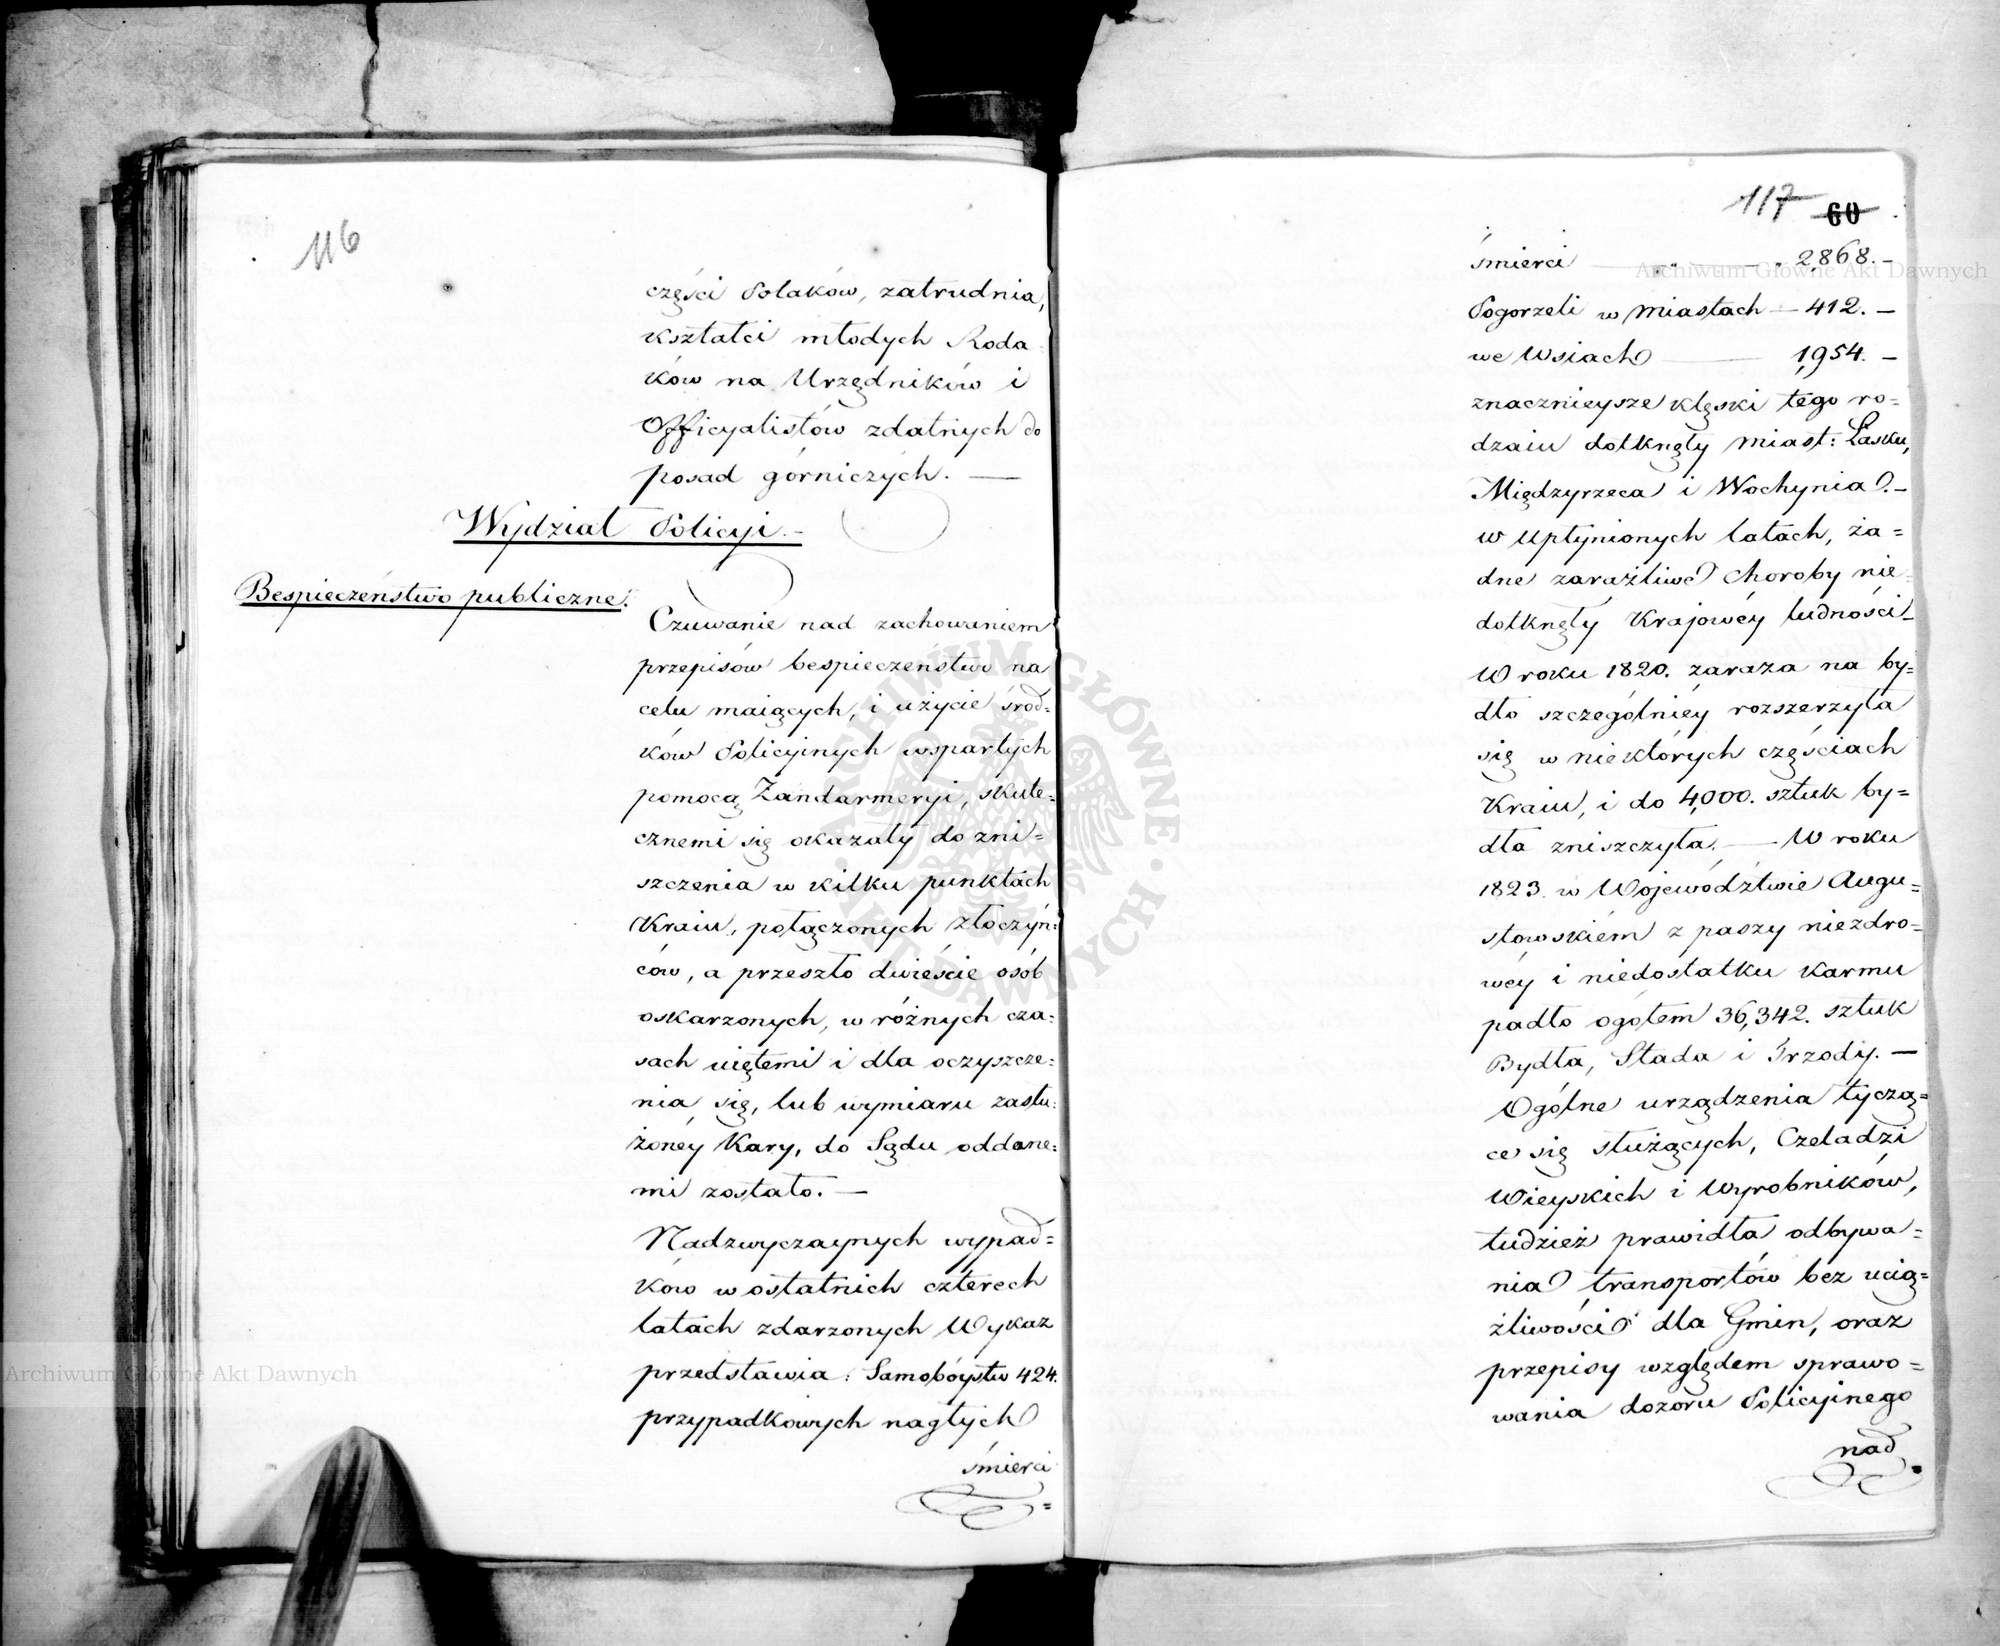 116
części Polaków, zatrudnia,
kształci młodych Roda
ków na Urzędników i
Officyalistów zdatnych do
posad górniczych. —
Wydział Policyi. —
Bespieczeństwo publiczne.
Czuwanie nad zachowaniem
przepisów bespieczeństwo na
celu maiących, i użycie środ=
ków Policyinych wspartych
pomocą Żandarmeryi, skute=
cznemi się okazały do zni=
szczenia w kilku punktach
Kraiu, połączonych złoczyń=
ców, a przeszło dwieście osób
oskarzonych, w różnych cza=
sach uiętemi i dla oczyszcze=
nia się, lub wymiaru zasłu=
żoney Kary, do Sądu oddane=
mi zostało. —
Nadzwyczaynych wypad=
ków w ostatnich czterech
latach zdarzonych Wykaz
przedstawia: Samobóystw 424.
przypadkowych nagłych
śmierci
117 60
śmierci — " — " 2868. —
Pogorzeli w Miastach — 412. —
we Wsiach — 1,954. —
znacznieysze klęski tego ro=
dzaiu dotknęły Miast: Łasku,
Międzyrzeca i Wochynia. —
w upłynionych latach, ża=
dne zaraźliwe Choroby nie
dotknęły Krajowéy ludności —
W roku 1820. zaraza na by=
dło szczególniéy rozszerzyła
się w niektórych częściach
Kraiu, i do 4,000. sztuk by=
dła zniszczyła. — W roku
1823. w Województwie Augu=
stowskiém z paszy niezdro=
wéy i niedostatku karmu
padło ogółem 36,342. sztuk
Bydła, Stada i Trzody. —
Ogólne urządzenia tyczą=
ce się służących, Czeladzi
Wieyskich i Wyrobników,
tudzież prawidła odbywa=
nia transportów bez ucią=
żliwości dla Gmin, oraz
przepisy względem sprawo=
wania dozoru Policyinego
nad
Archiwum Główne Akt Dawnych
Archiwum Główne Akt Dawnych
ARCHIWUM GŁÓWNE · AKT DAWNYCH ·